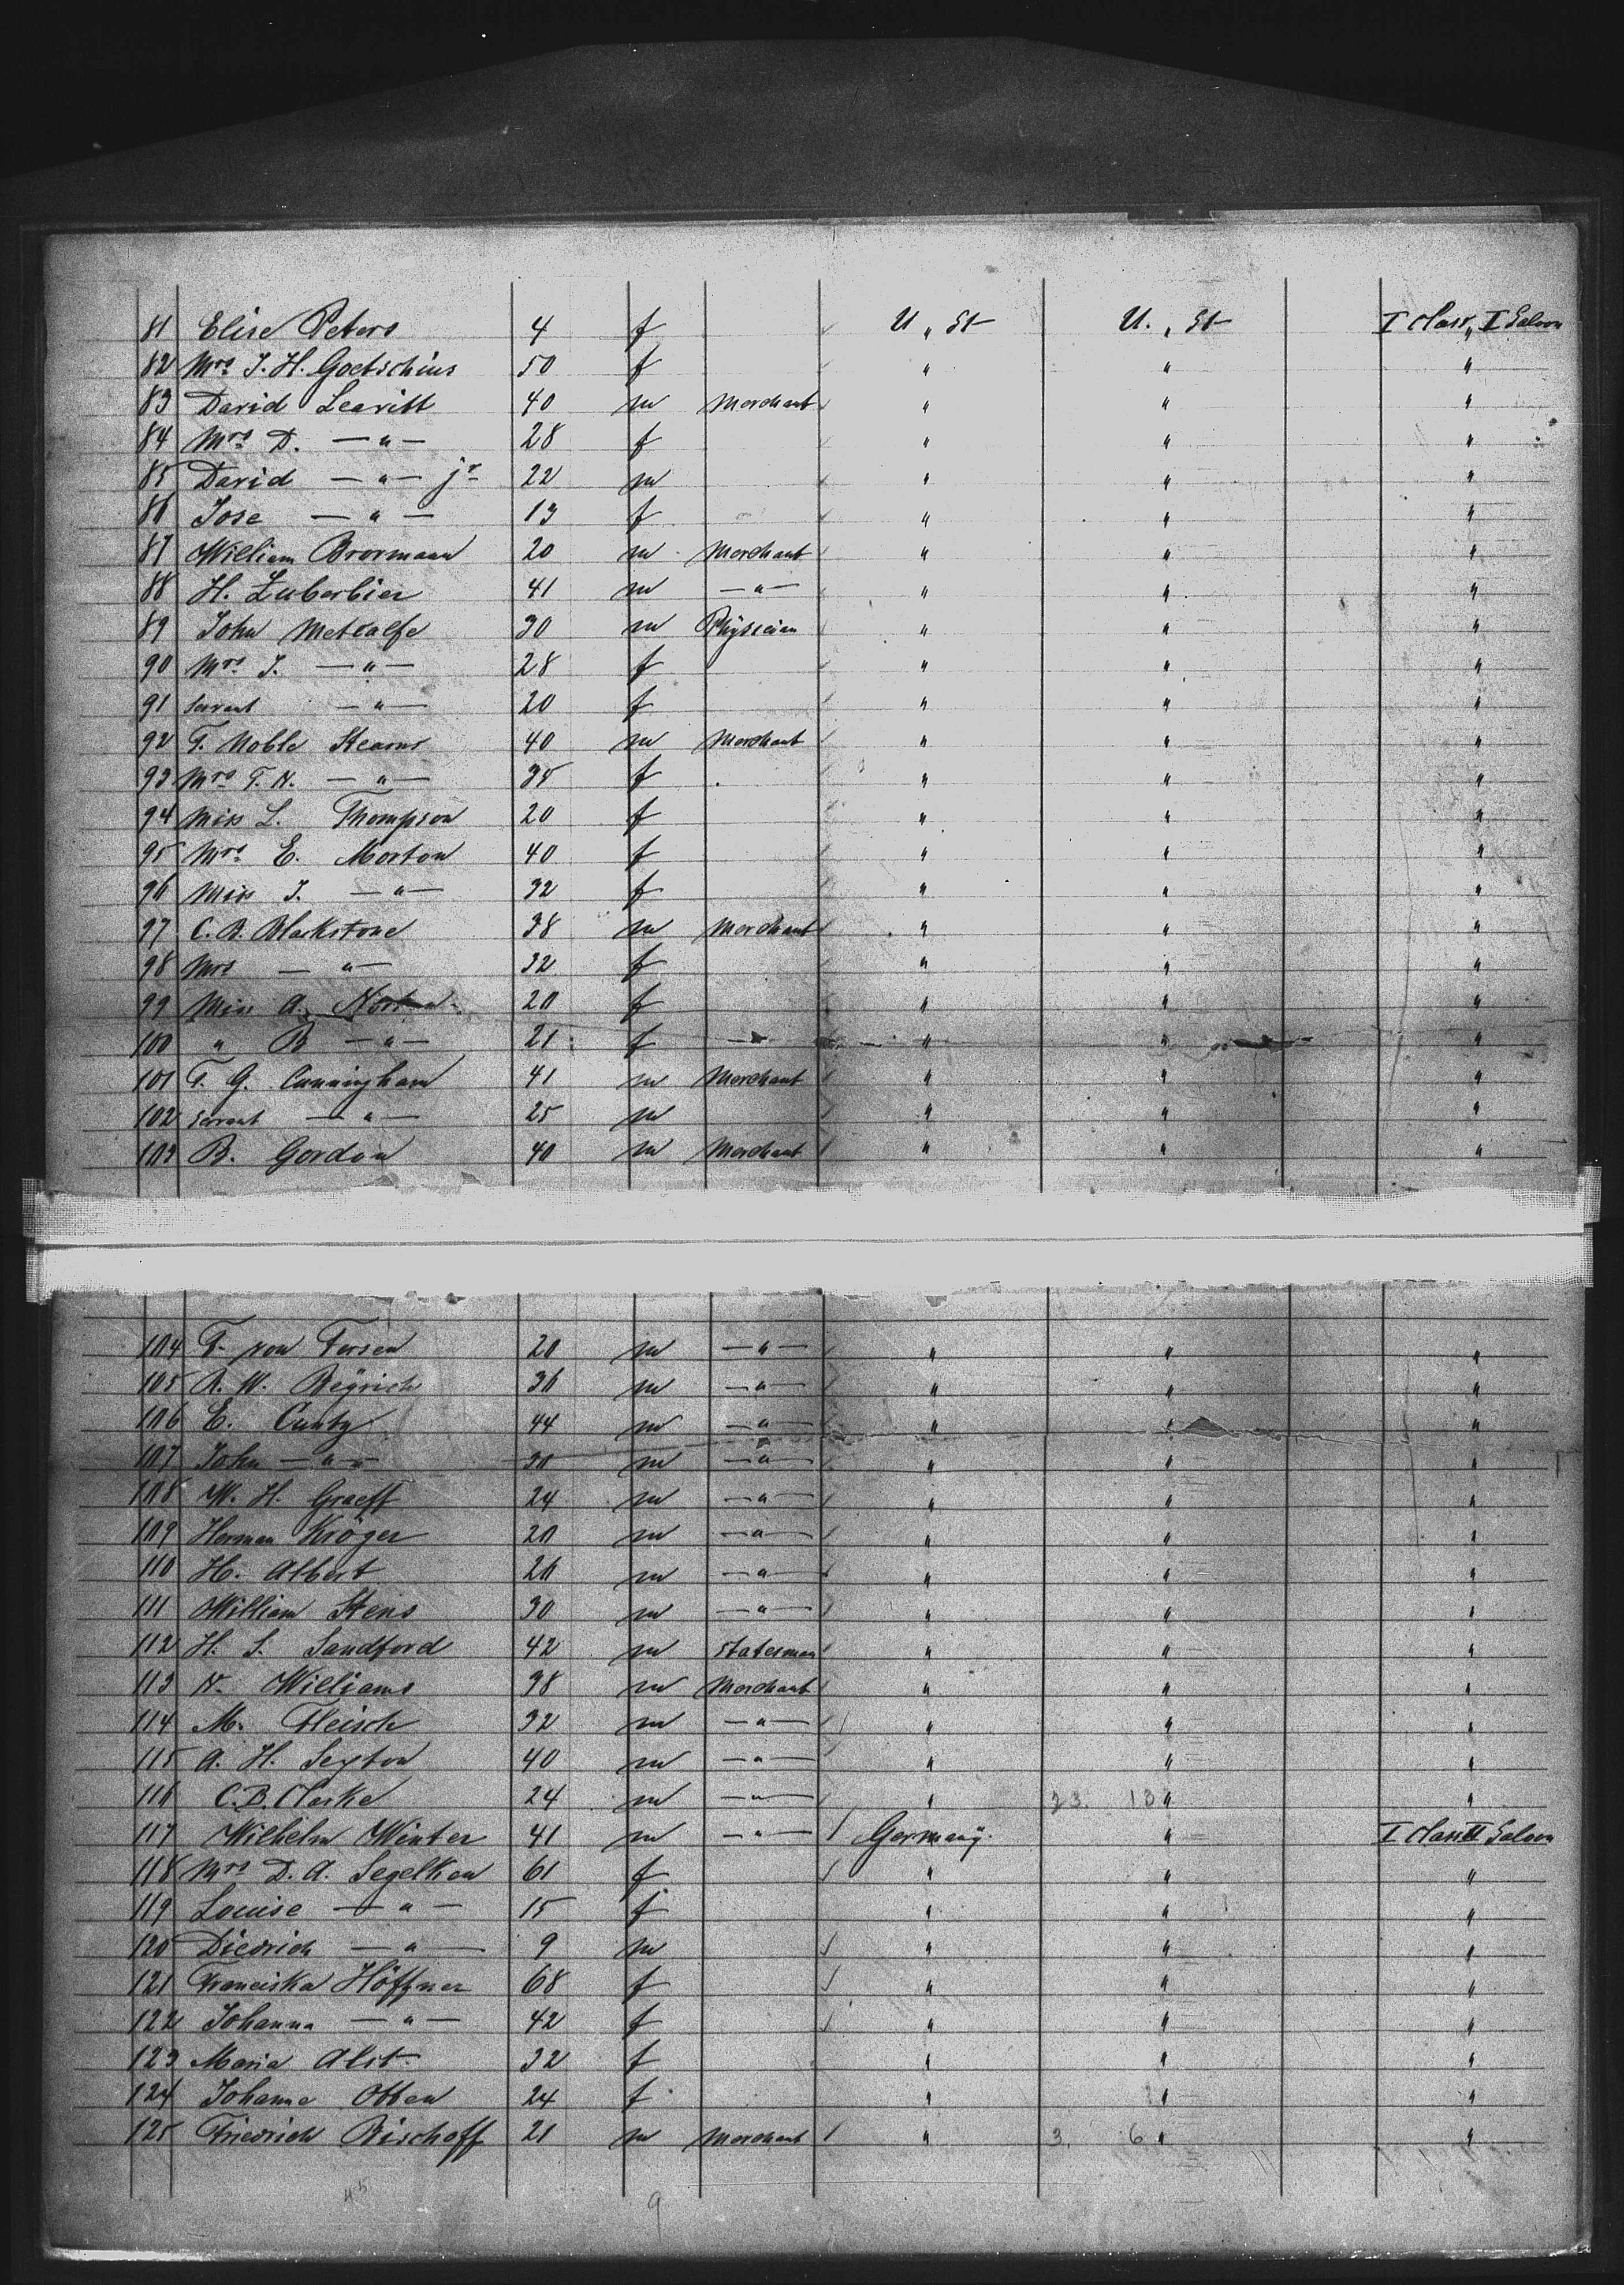 81 Elise Peters 4 f U „ St U. „ St I Class „ I Saloon
82 Mrs J. H. Goetschius 50 f " " "
83 David Leavitt 40 m Merchant " " "
84 Mrs D. — " — 28 f " " "
85 David — " — jr 22 m " " "
86 Jose — " — 13 f " " "
87 William Brormann 20 m Merchant " " "
88 H. Luberbier 41 m — " — " " "
89 John Metcalfe 30 m Physician " " "
90 Mrs J. — " — 28 f " " "
91 Servant — " — 20 f " " "
92 T. Noble Stearns 40 m Merchant " " "
93 Mrs T. N. — " — 35 f " " "
94 Miss L. Thompson 20 f " " "
95 Mrs E. Morton 40 f " " "
96 Miss J. — " — 32 f " " "
97 C. B. Blackstone 38 m Merchant " " "
98 Mrs — " — 32 f " " "
99 Miss A. Norton 20 f " " "
100 " B — " — 21 f " " "
101 T. G. Cunningham 41 m Merchant " " "
102 Servant — " — 25 m " " "
103 B. Gordon 40 m Merchant " " "
104 T. von Fersen 20 m — " — " " "
105 R. W. Beÿrich 36 m — " — " " "
106 E. Cuntz 44 m — " — " " "
107 John — " — 30 m — " — " " "
108 W. H. Graeff 24 m — " — " " "
109 Herman Kröger 20 m — " — " " "
110 H. Albert 26 m — " — " " "
111 William Stens 30 m — " — " " "
112 H. S. Sandford 42 m Statesman " " "
113 N. Williams 38 m Merchant " " "
114 M. Fleisch 32 m — " — " " "
115 A. H. Sexton 40 m — " — " " "
116 C. B. Clarke 24 m — " — " 23. 13 " "
117 Wilhelm Winter 41 m — " — Germanÿ. " I Class II Saloon
118 Mrs D. A. Segelken 61 f " " "
119 Louise — " — 15 f " " "
120 Diedrich — " — 9 m " " "
121 Franciska Höffner 68 f " " "
122 Johanna — " — 42 f " " "
123 Maria Alit 32 f " " "
124 Johanne Otten 24 f " " "
125 Friedrich Bischoff 21 m Merchant " 3. 6 " "
45 9